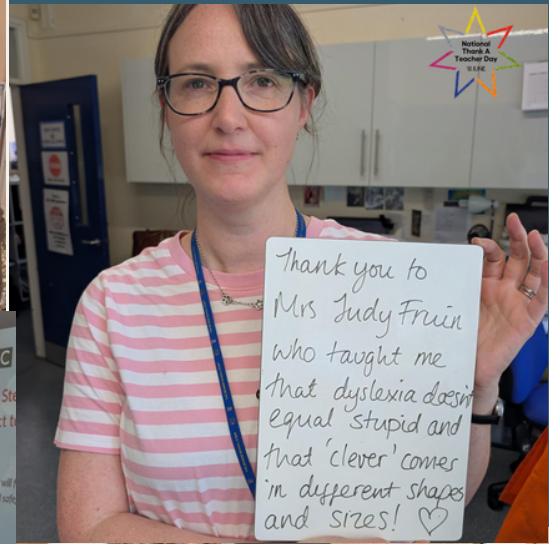 National
Thank A
Teacher Day
18 JUNE
Thank you to
Mrs Judy Fruin
who taught me
that dyslexia doesn't
equal stupid and
that 'clever' comes
in different shapes
and sizes! ♡
C
Ste
ct t
will f
safe